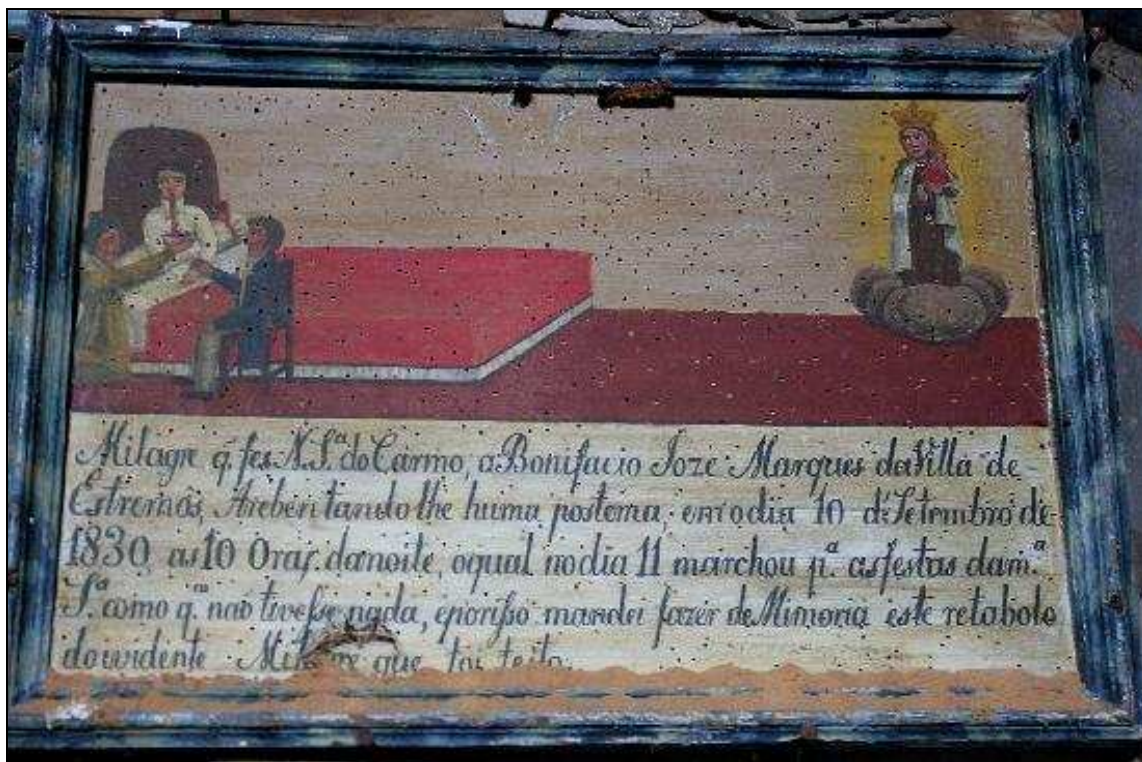 Milagre q. fes N. S.ª do Carmo, a Bonifacio Joze Marques da Villa de
Estremôs, Arebentando lhe huma postema, em o dia 10 d'Setembro de
1830, as 10 Oras, da noite, o qual no dia 11 marchou p.ª as festas da m.ª
S.ª como q.m não tivesse nada, e por isso mandei fazer de Mimoria este retabolo
do ividente Milagre que foi feito.